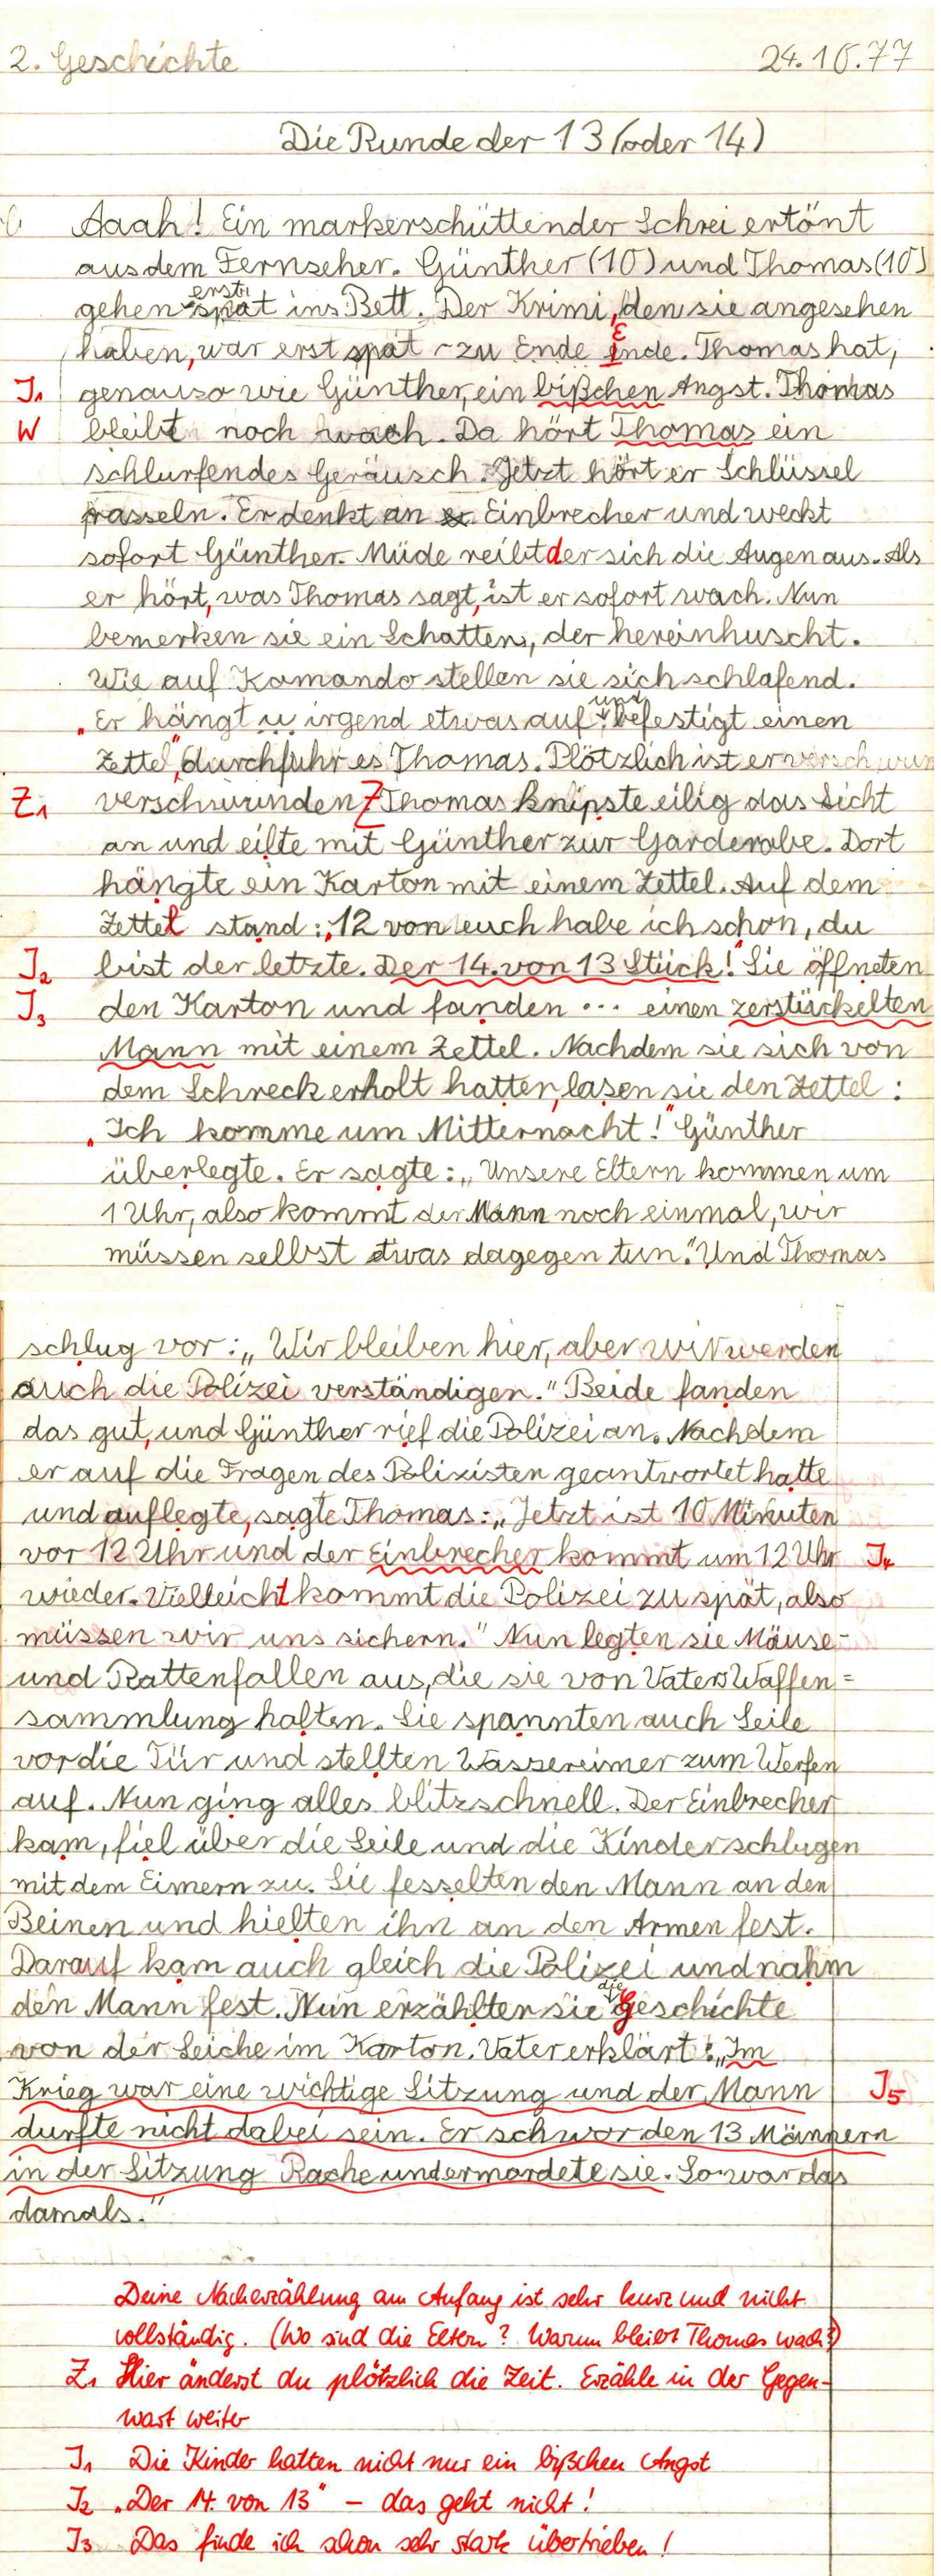 2. Geschichte 24.10.77
Die Runde der 13 (oder 14)
Aaah! Ein markerschüttender Schrei ertönt
aus dem Fernseher. Günther (10) und Thomas (10)
erst
gehen spät ins Bett. Der Krimi, den sie angesehen
haben, war erst spät zu Ende Ende. Thomas hat,
J1 genauso wie Günther, ein bißchen Angst. Thomas
W bleibt noch wach. Da hört Thomas ein
schlurfendes Geräusch. Jetzt hört er Schlüssel
rasseln. Er denkt an Einbrecher und weckt
sofort Günther. Müde reibt der sich die Augen aus. Als
er hört, was Thomas sagt, ist er sofort wach. Nun
bemerken sie ein Schatten, der hereinhuscht.
Wie auf Komando stellen sie sich schlafend.
und
„Er hängt irgend etwas auf, befestigt einen
Zettel", durchfuhr es Thomas. Plötzlich ist er verschwun
Z1 verschwunden Z Thomas knipste eilig das Licht
an und eilte mit Günther zur Garderobe. Dort
hängte ein Karton mit einem Zettel. Auf dem
Zettel stand: „12 von euch habe ich schon, du
J2 bist der letzte. Der 14. von 13 Stück!" Sie öffneten
J3 den Karton und fanden ... einen zerstückelten
Mann mit einem Zettel. Nachdem sie sich von
dem Schreck erholt hatten, lasen sie den Zettel:
„Ich komme um Mitternacht!" Günther
überlegte. Er sagte: „Unsere Eltern kommen um
1 Uhr, also kommt der Mann noch einmal, wir
müssen selbst etwas dagegen tun." Und Thomas
schlug vor: „Wir bleiben hier, aber wir werden
auch die Polizei verständigen." Beide fanden
das gut, und Günther rief die Polizei an. Nachdem
er auf die Fragen des Polizisten geantwortet hatte
und auflegte, sagte Thomas: „Jetzt ist 10 Minuten
vor 12 Uhr und der Einbrecher kommt um 12 Uhr J4
wieder. Vielleicht kommt die Polizei zu spät, also
müssen wir uns sichern." Nun legten sie Mäuse-
und Rattenfallen aus, die sie von Vaters Waffen=
sammlung holten. Sie spannten auch Seile
vor die Tür und stellten Wassereimer zum Werfen
auf. Nun ging alles blitzschnell. Der Einbrecher
kam, fiel über die Seile und die Kinder schlugen
mit dem Eimern zu. Sie fesselten den Mann an den
Beinen und hielten ihn an den Armen fest.
Darauf kam auch gleich die Polizei und nahm
die
den Mann fest. Nun erzählten sie Geschichte
von der Leiche im Karton. Vater erklärt: „Im
Krieg war eine wichtige Sitzung und der Mann J5
durfte nicht dabei sein. Er schwor den 13 Männern
in der Sitzung Rache und ermordete sie. So war das
damals."
Deine Nacherzählung am Anfang ist sehr kurz und nicht
vollständig. (Wo sind die Eltern? Warum bleibt Thomas wach?)
Z1 Hier änderst du plötzlich die Zeit. Erzähle in der Gegen-
wart weiter
J1 Die Kinder hatten nicht nur ein bißchen Angst
J2 „Der 14. von 13" – das geht nicht!
J3 Das finde ich schon sehr stark übertrieben!